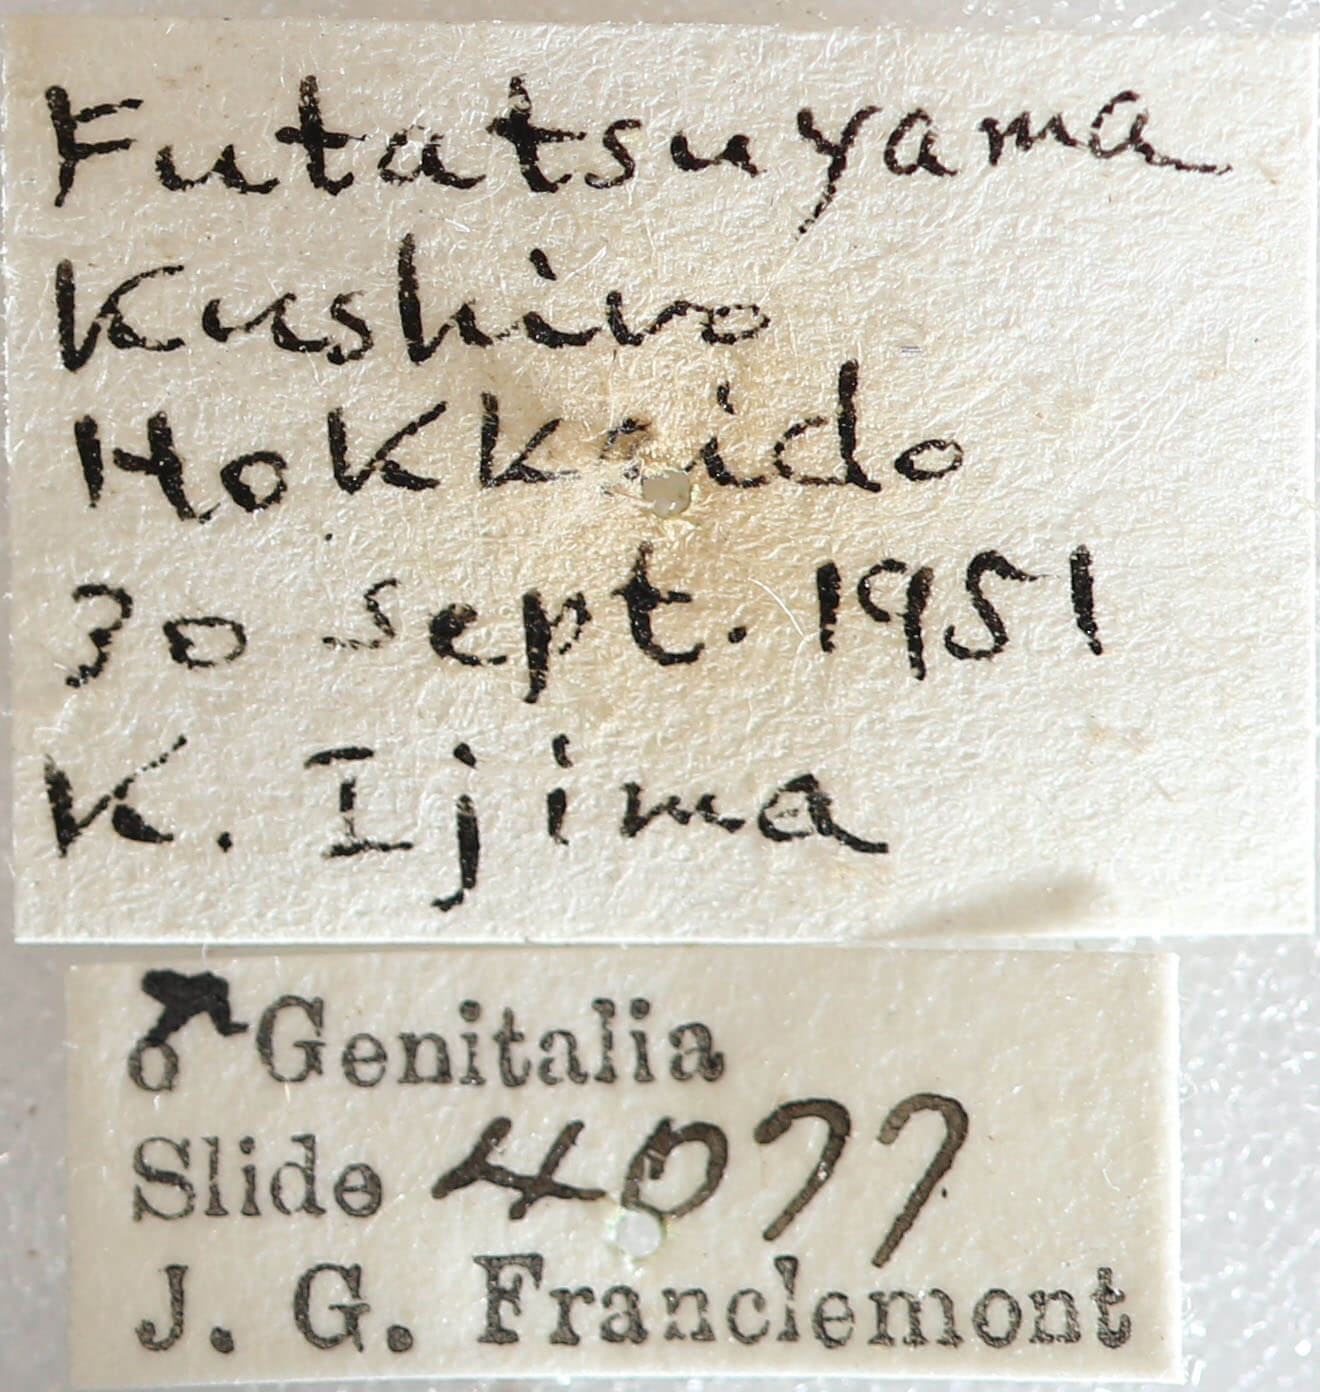 Futatsuyama
Kushiro
Hokkaido
30 Sept. 1951
K. Ijima
♂ Genitalia
Slide 4077
J. G. Franclemont